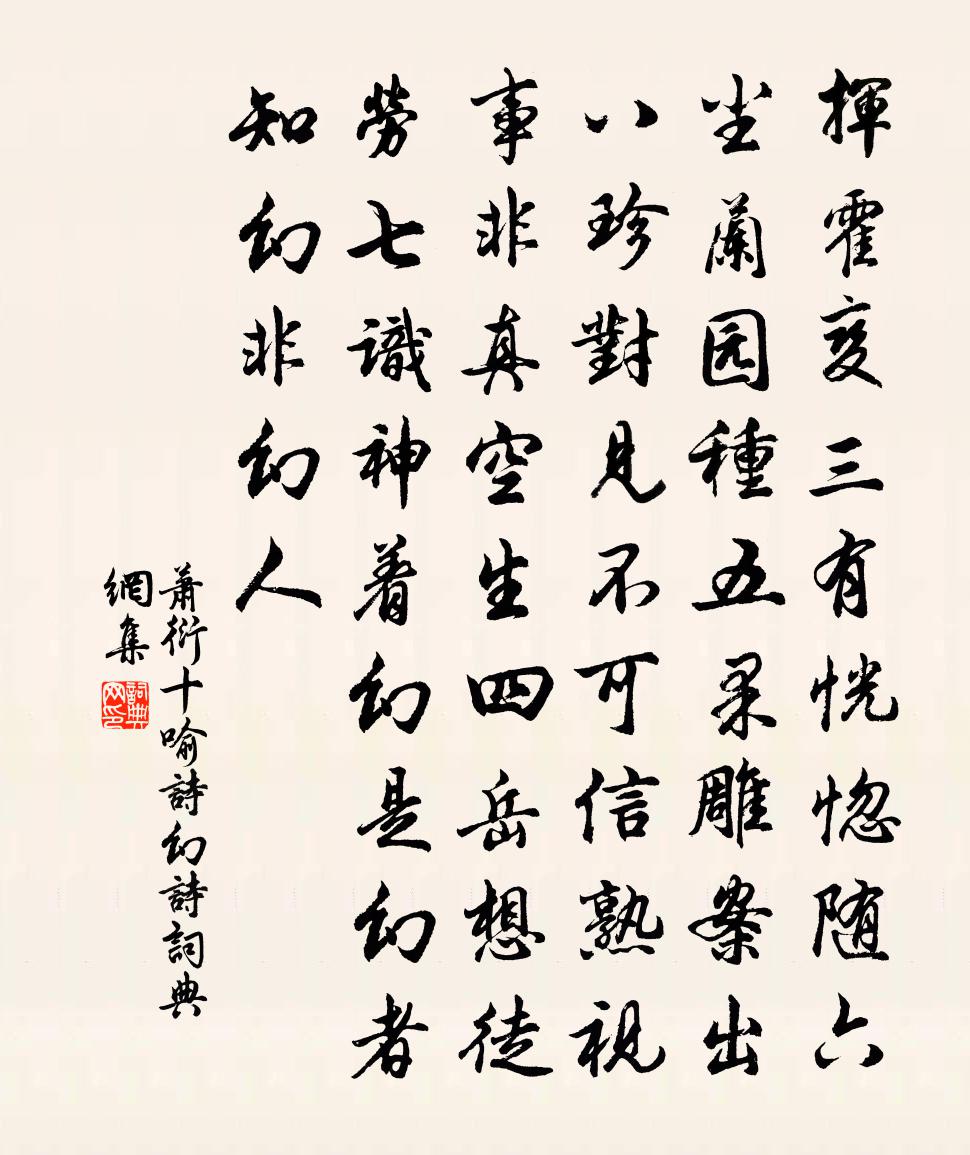 揮霍变三有恍惚随六
尘蘭园種五果雕案出
八珍對見不可信熟視
事非真空生四岳想徒
勞七識神着幻是幻者
知幻非幻人
蕭衍十喻詩幻詩詞典
網集
詞典网印